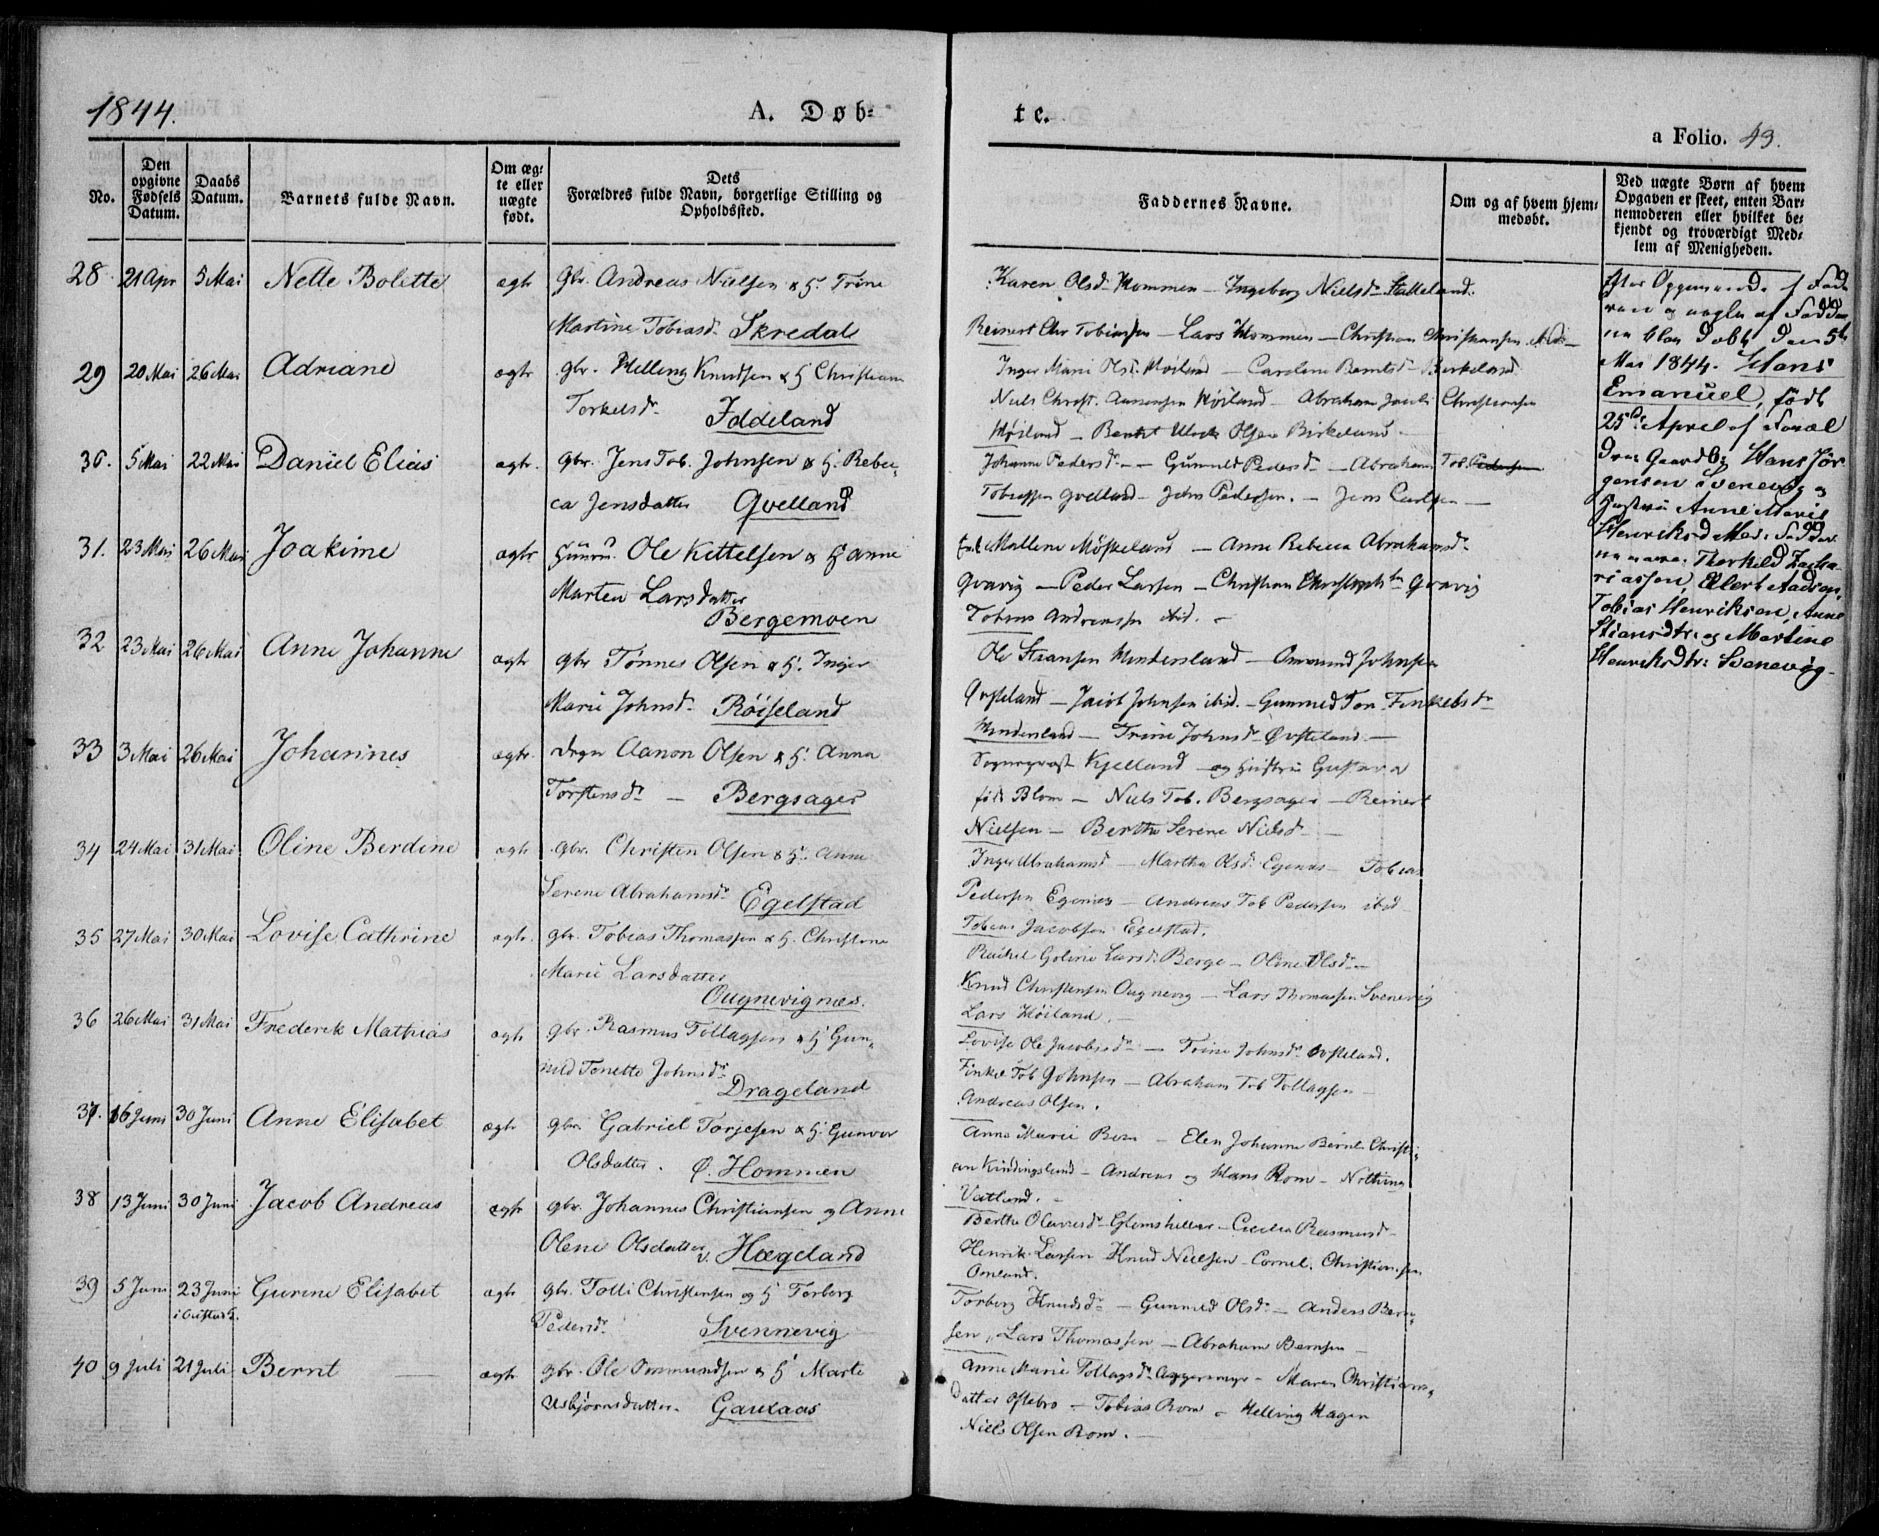 1844.
A. Døb-
te.
a Folio. 43.
No.
Den opgivne Fødsels Datum.
Daabs Datum.
Barnets fulde Navn.
Om ægte eller uægte født.
Dets Forældres fulde Navn, borgerlige Stilling og Opholdssted.
Faddernes Navne.
Om og af hvem hjemmedøbt.
Ved uægte Børn af hvem Opgaven er skeet, enten Barnemoderen eller hvilket bekjendt og troværdigt Medlem af Menigheden.
28 21 Apr 5 Mai Nette Bolette ægte gbr. Andreas Nielsen & H. Trine
Martine Tobiasd. Skredal
Karen Olsd. Hommen — Ingeborg Nielsd. Stalleland.
Reinert Chr Tobiassen — Lars Hommen — Christian Christiansen
29 20 Mai 26 Mai Adriane ægte gbr. Helling Knudsen & H. Christiane
Torkelsd. Iddeland
Inger Marie Olsd. Høiland — Caroline Berntsd. Birkeland
Niels Christ. Høiland — Abraham Jacob Christiansen
Høiland — Olsen Birkeland
30. 5 Mai 22 Mai Daniel Elias ægte. gbr. Jens Tob. Johnsen & H. Rebec-
ca Jensdatter Gvelland
Johanne Pedersd. — Gunnild Pedersd. — Abraham Tob. Pedersen
Tobiassen Gvelland — John Pedersen. — Jens Carlsen —
31. 23 Mai 26 Mai Joakime ægte Huusm. Ole Kittelsen & H. Anne
Marten Larsdatter
Bergemoen
Mallene Møskeland — Anne Rebecca Abrahamsd.
Gvavig — Peder Larsen — Christian Gvavig
Tobias Andreassen ibid. —
32 23 Mai 26 Mai Anne Johanne ægte gbr Tønnes Olsen & H. Inger
Marie Johnsd. Røiseland
Ole Mindersland — Omund Johnsen
Øvsteland — Jacob Johnsen ibid. — Gunnild Tor. Finkelsd.
Mindersland — Trine Johnsd. Øvsteland. —
33 3 Mai 26 Mai Johannes ægte. Aanon Olsen & H. Anna
Torstensd. — Bergsager
Sogneprest Kjelland — og Hustru Gustava
født Blom — Niels Tob. Bergsager — Reinert
Nielsen — Berthe Serene Nielsd. —
34 24 Mai 31 Mai Oline Berdine ægte gbr. Christen Olsen & H. Anne
Serene Abrahamsd. Egelstad
Inger Abrahamsd — Martha Olsd. Egenes — Tobias
Pedersen Egenes — Andreas Tob Pedersen ibid
Tobias Jacobsen Egelstad.
35 27 Mai 30 Mai Lovise Cathrine ægte. gbr. Tobias Thomassen & H. Christine
Marie Larsdatter
Ougnevignes.
Rachel Goline Larsd. Berge — Oline Olsd. —
Knud Christensen Ougnevig — Lars Thomassen Svenevig
Lars Høiland. —
36 26 Mai 31 Mai Frederik Mathias ægte gbr. Rasmus Tollagsen & H Gun-
nild Tonette Johnsd.
Drageland
Lovise Ole Jacobsd. — Trine Johnsd. Øvsteland.
Finkel Tob Johnsen — Abraham Tob Tollagsen —
Andreas Olsen.
37. 16 Juni 30 Juni Anne Elisabet ægte gbr. Gabriel Torjesen & H. Gunvor
Olsdatter. Ø. Hommen
Anne Marie Rom — Elen Johanne Bernt Christi-
an Kindingsland — Andreas og Hans Rom —
Vatland. —
38 13 Juni 30 Juni Jacob Andreas ægte gbr. Johannes Christiansen og Anne
Olene Olsdatter v. Hægeland
Berthe — Cecilia Rasmusd —
Henrik Larsen Knud Nielsen — Cornel. Christiansen
Omland.
39 5 Juni 23 Juni Gurine Elisabet ægte gbr. Tolli Christensen og H Torborg
Pedersd. Svennevig
Torborg Knudsd. — Gunnild Olsd. — Anders Bern-
sen, Lars Thomassen — Abraham Bernsen —
40 9 Juli 21 Juli Bernt — ægte. gbr. Ole Ommundsen & H Marte
Asbjørnsdatter. Gaukaas
Anne Marie Tollagsd. — Maren Christians-
datter Øftebro — Tobias Rom — Helling Hagen
Niels Olsen Rom. —
af Fad-
rene og nogle af Fadder-
ne blev døbt den 5te
Mai 1844. Hans
Emanuel, født
25de April af Foræl
dre Gaardbr Hans Jør
gensen Svenevig og
Hustru Anne Marie
Henriksd Fadder
ne vare: Therkild Zacha-
riassen, Elert Aadsen,
Tobias Henriksen, Anne
Stiansdtr: og Martine
Henriksdtr: Svenevig.